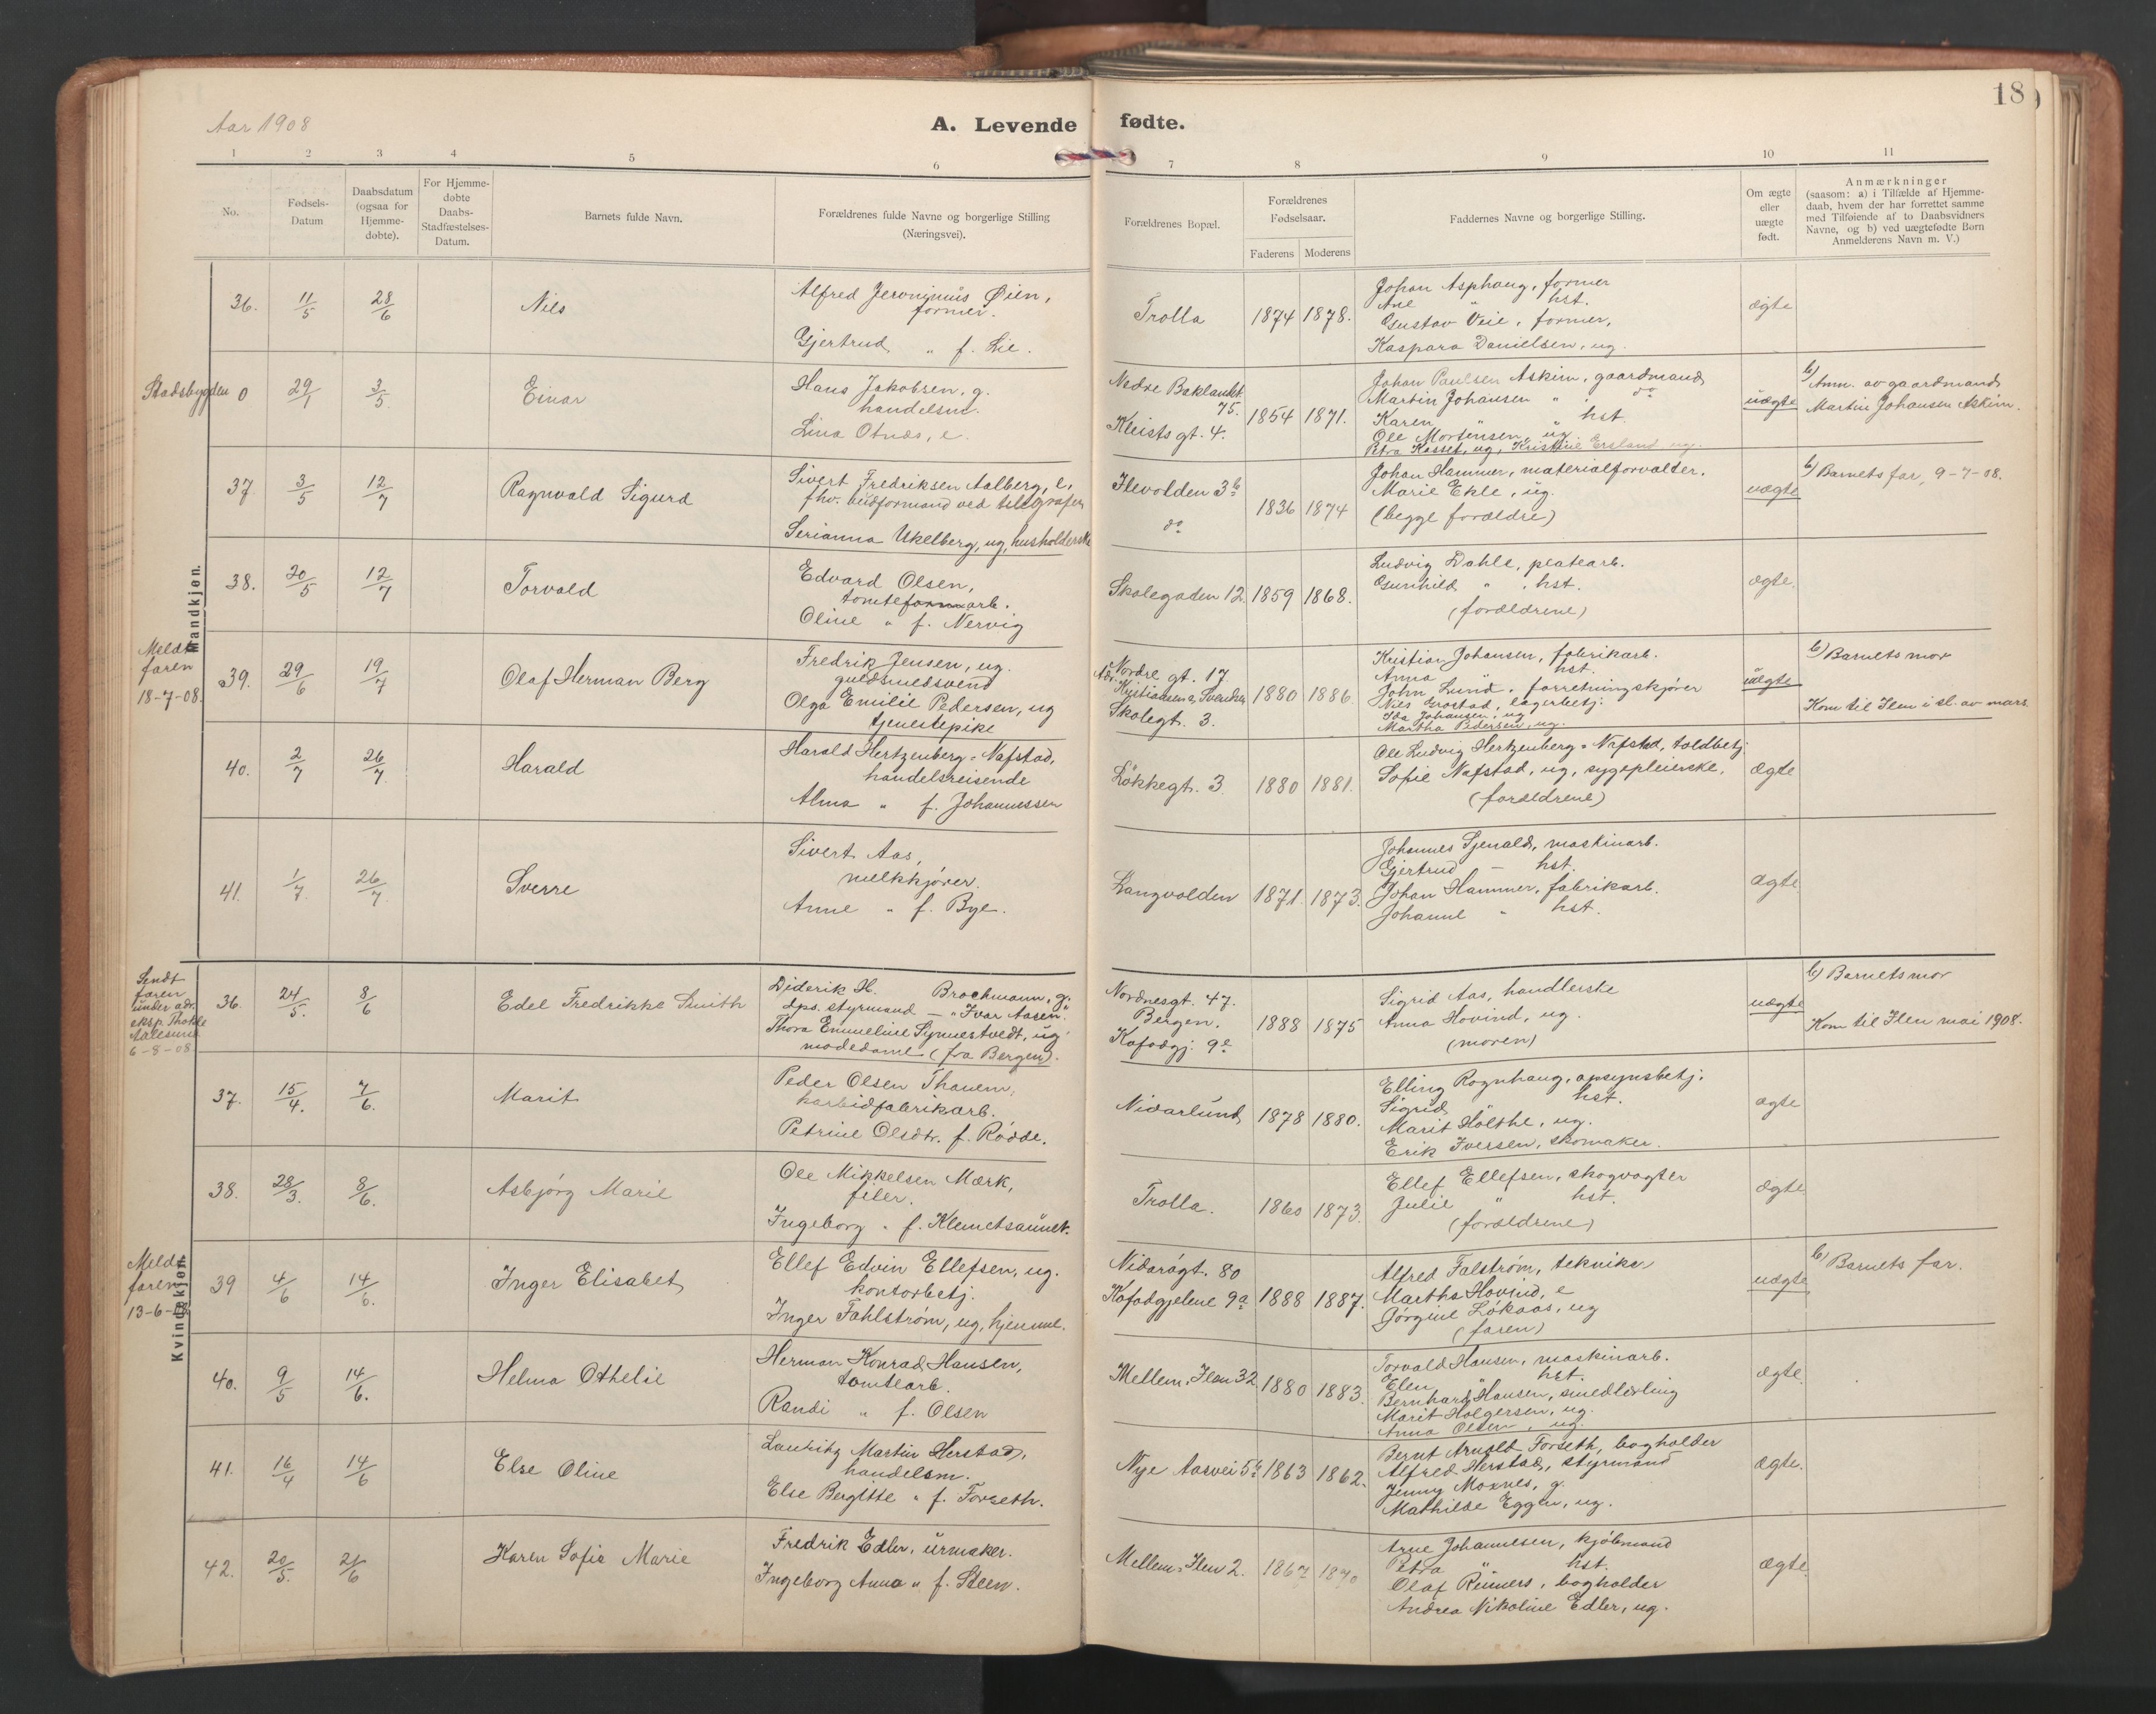 Aar 1908
A. Levende fødte.
18
1 2 3 4 5 6 7 8 9 10 11
No.
Fødsels-
Datum
Daabsdatum
(ogsaa for
Hjemme-
døbte).
For Hjemme-
døbte
Daabs-
Stadfæstelses-
Datum.
Barnets fulde Navn.
Forældrenes fulde Navne og borgerlige Stilling
(Næringsvei).
Forældrenes Bopæl.
Forældrenes
Fødselsaar.
Faderens Moderens
Faddernes Navne og borgerlige Stilling.
Om ægte
eller
uægte
født.
Anmærkninger
(saasom: a) i Tilfælde af Hjemme-
daab, hvem der har forrettet samme
med Tilføiende af to Daabsvidners
Navne, og b) ved uægtefødte Børn
Anmelderens Navn m. V.)
Mandkjøn.
36. 11/5 28/6 Nils
Alfred Jeronymus Øien,
former.
Gjertrud " f. Lie.
Trolla 1874 1878.
Johan Asphaug, former
Ane " hst.
Gustav Veie, former,
Kaspara Danielsen, ug.
ægte
Stadsbygden 0 29/1 3/5 Einar
Hans Jakobsen, g.
handelsm.
Lina Otnes, e.
Nedre Baklandet
75.
Kleists gt. 4.
1854 1871.
Johan Paulsen Askim, gaardmand
Martin Johansen " do
Karen " hst.
Ole Mortensen, ug
Petra Kasset, ug, Kristine Ersland ug.
uægte
b) Anm. av gaardmand
Martin Johansen Askim.
37 3/5 12/7 Ragnvald Sigurd
Sivert Fredriksen Aalberg, e,
fhv. budformand ved telegrafen
Serianna Ukelberg, ug, husholderske
Ilevolden 3b
do
1836 1874
Johan Hammer, materialforvalter.
Marie Ekle, ug.
(begge forældre)
uægte
b) Barnets far, 9-7-08.
38. 20/5 12/7 Torvald
Edvard Olsen,
tomteformarb.
Oline " f. Nervig
Skolegaden 12. 1859 1868.
Ludvig Dahle, platearb.
Gunhild " hst.
(forældrene)
ægte.
Meldt
faren
18-7-08.
39. 29/6 19/7 Olaf Herman Berg
Fredrik Jensen, ug.
guldsmedsvend
Olga Emilie Pedersen, ug
tjenestepike
Nordre gt. 17.
Skolegt. 3.
1880 1886
Kristian Johansen, fabrikarb.
Anna " hst.
John Lund, forretningskjører
Nils Grostad, lagerbetj.
Ida Johansen, ug
Martha Pedersen, ug.
uægte
b) Barnets mor
Kom til Ilen i sl. av mars
40. 2/7 26/7 Harald
Harald Hertzenberg-Nafstad,
handelsreisende
Alma " f. Johannessen
Løkkegt. 3. 1880 1881.
Ole Ludvig Hertzenberg-Nafstad, toldbetj.
Sofie Nafstad, ug, sygepleierske,
(forældrene)
ægte
41. 1/7 26/7 Sverre
Sivert Aas,
melkkjører.
Anne " f. Bye.
Langvolden 1871. 1873.
Johannes Gjenald, maskinarb.
Gjertrud — hst.
Johan Hammer, fabrikarb.
Johanne " hst.
ægte
Kvindekjøn.
Sendt
faren
under adr.
eksp. Tholle
Aalesund
6-8-08.
36. 24/5. 8/6 Edel Fredrikke Smith
Diderik H. Brochmann, g.
dps. styrmand — "Ivar Aasen."
Thora Emmeline Synnestvedt, ug
modedame (fra Bergen).
Nordnesgt. 47.
Bergen.
Kafadgj. 9e
1888 1875
Sigrid Aas, handlerske
Anna Hovind, ug.
(moren)
uægte
b) Barnets mor
Kom til Ilen mai 1908.
37. 15/4. 7/6. Marit
Peder Olsen Thanem,
karbidfabrikarb.
Petrine Olsdtr. f. Rødde.
Nidarlund 1878 1880.
Elling Rognhaug, opsynsbetj.
Sigrid hst.
Marit Holthe, ug.
Erik Iversen, skomaker.
ægte
38. 28/3. 8/6. Asbjørg Marie
Ole Mikkelsen Mærk,
filer.
Ingeborg " f. Klemetsaunet.
Trolla. 1860 1873.
Ellef Ellefsen, skogvogter
Julie " hst.
(forældrene)
ægte
Meldt
faren
13-6-08
39 4/6 14/6. Inger Elisabet
Ellef Edvin Ellefsen, ug.
kontorbetj.
Inger Fahlstrøm, ug, hjemme.
Nidarøgt. 80
Kafadgjelene 9a
1888 1887.
Alfred Falstrøm, tekniker
Martha Hovind, e
Jørgine Løkaas, ug
(faren)
uægte
b) Barnets far.
40. 9/5 14/6. Helma Othelie
Herman Konrad Hansen,
tomtearb.
Randi " f. Olsen
Mellem-Ilen 32 1880 1883.
Torvald Hansen, maskinarb.
Elen " hst.
Bernhard Hansen, smedlærling
Marit Holgersen, ug.
Anna Olsen, ug.
ægte.
41. 16/4 14/6 Else Oline
Lauritz Martin Herstad,
handelsm.
Else Bergitte " f. Forseth.
Nye Aasvei 5a 1863 1862.
Bernt Arnold Forseth, bogholder
Alfred Herstad, styrmand
Jenny Moxnes, g.
Mathilde Eggen, ug.
ægte.
42. 20/5. 21/6 Karen Sofie Marie
Fredrik Edler, urmaker.
Ingeborg Anna " f. Steen.
Mellem-Ilen 2. 1867 1870
Arne Johannesen, kjøbmand
Petra " hst.
Olaf Reimers, bogholder
Andrea Nikoline Edler, ug.
ægte.